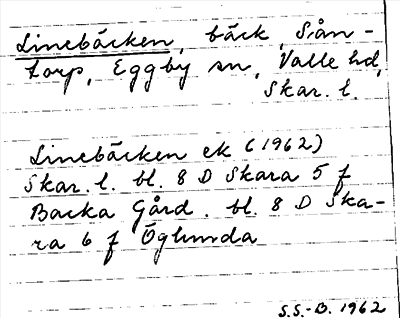 Linebäcken, bäck, Sån-
torp, Eggby sn, Valle hd,
Skar. l.
Linebäcken ek (1962)
Skar. l. bl. 8 D Skara 5 f
Backa Gård. bl. 8 D Ska-
ra 6 f Öglunda
S.S.-B. 1962